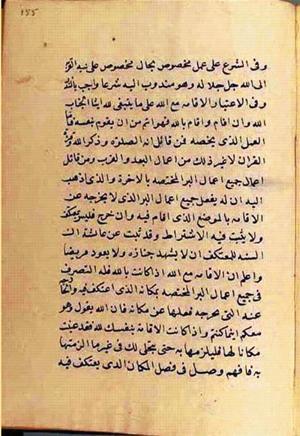 ١٥٥
وفى الشرع على عمل مخصوص بحال مخصوص على نية القربة
الى الله جل جلاله وهو مندوب اليه شرعا واجب بالنذر
وفى الاعتبار الاقامة مع الله على ما ينبغى لله ايثارا لجناب
الله وان اقام بالله فهو اتم من ان يقوم بنفسه فاما
العمل الذى يخصه فمن قائل انه الصلوة وذكر الله وقراءة
القران لا غير ذلك من اعمال البر والقرب ومن قائل
اعمال جميع اعمال البر المختصة بالاخرة والذى اذهب
اليه ان له يفعل جميع افعال البر الذى لا يخرجه عن
الاقامة بالموضع الذى اقام فيه وان خرج فليس بمعتكف
ولا يثبت فيه الاشتراط وقد ثبت عن عائشة ان
السنة للمعتكف ان لا يشهد جنازة ولا يعود مريضا
واعلم ان الاقامة مع الله اذا كانت بالله فله التصرف
فى جميع اعمال البر المختصة بمكانه الذى اعتكف فيه والخارجة
عنه التى يخرجه فعلها عن مكانه فان الله يقول وهو
معكم اينما كنتم واذا كانت الاقامة بنفسك لله فقد عينت
مكانا لها فليلزمها به حتى يتجلى لك فى غير ما الزمتها
به فافهم وصل فى فصل المكان الذى يعتكف فيه